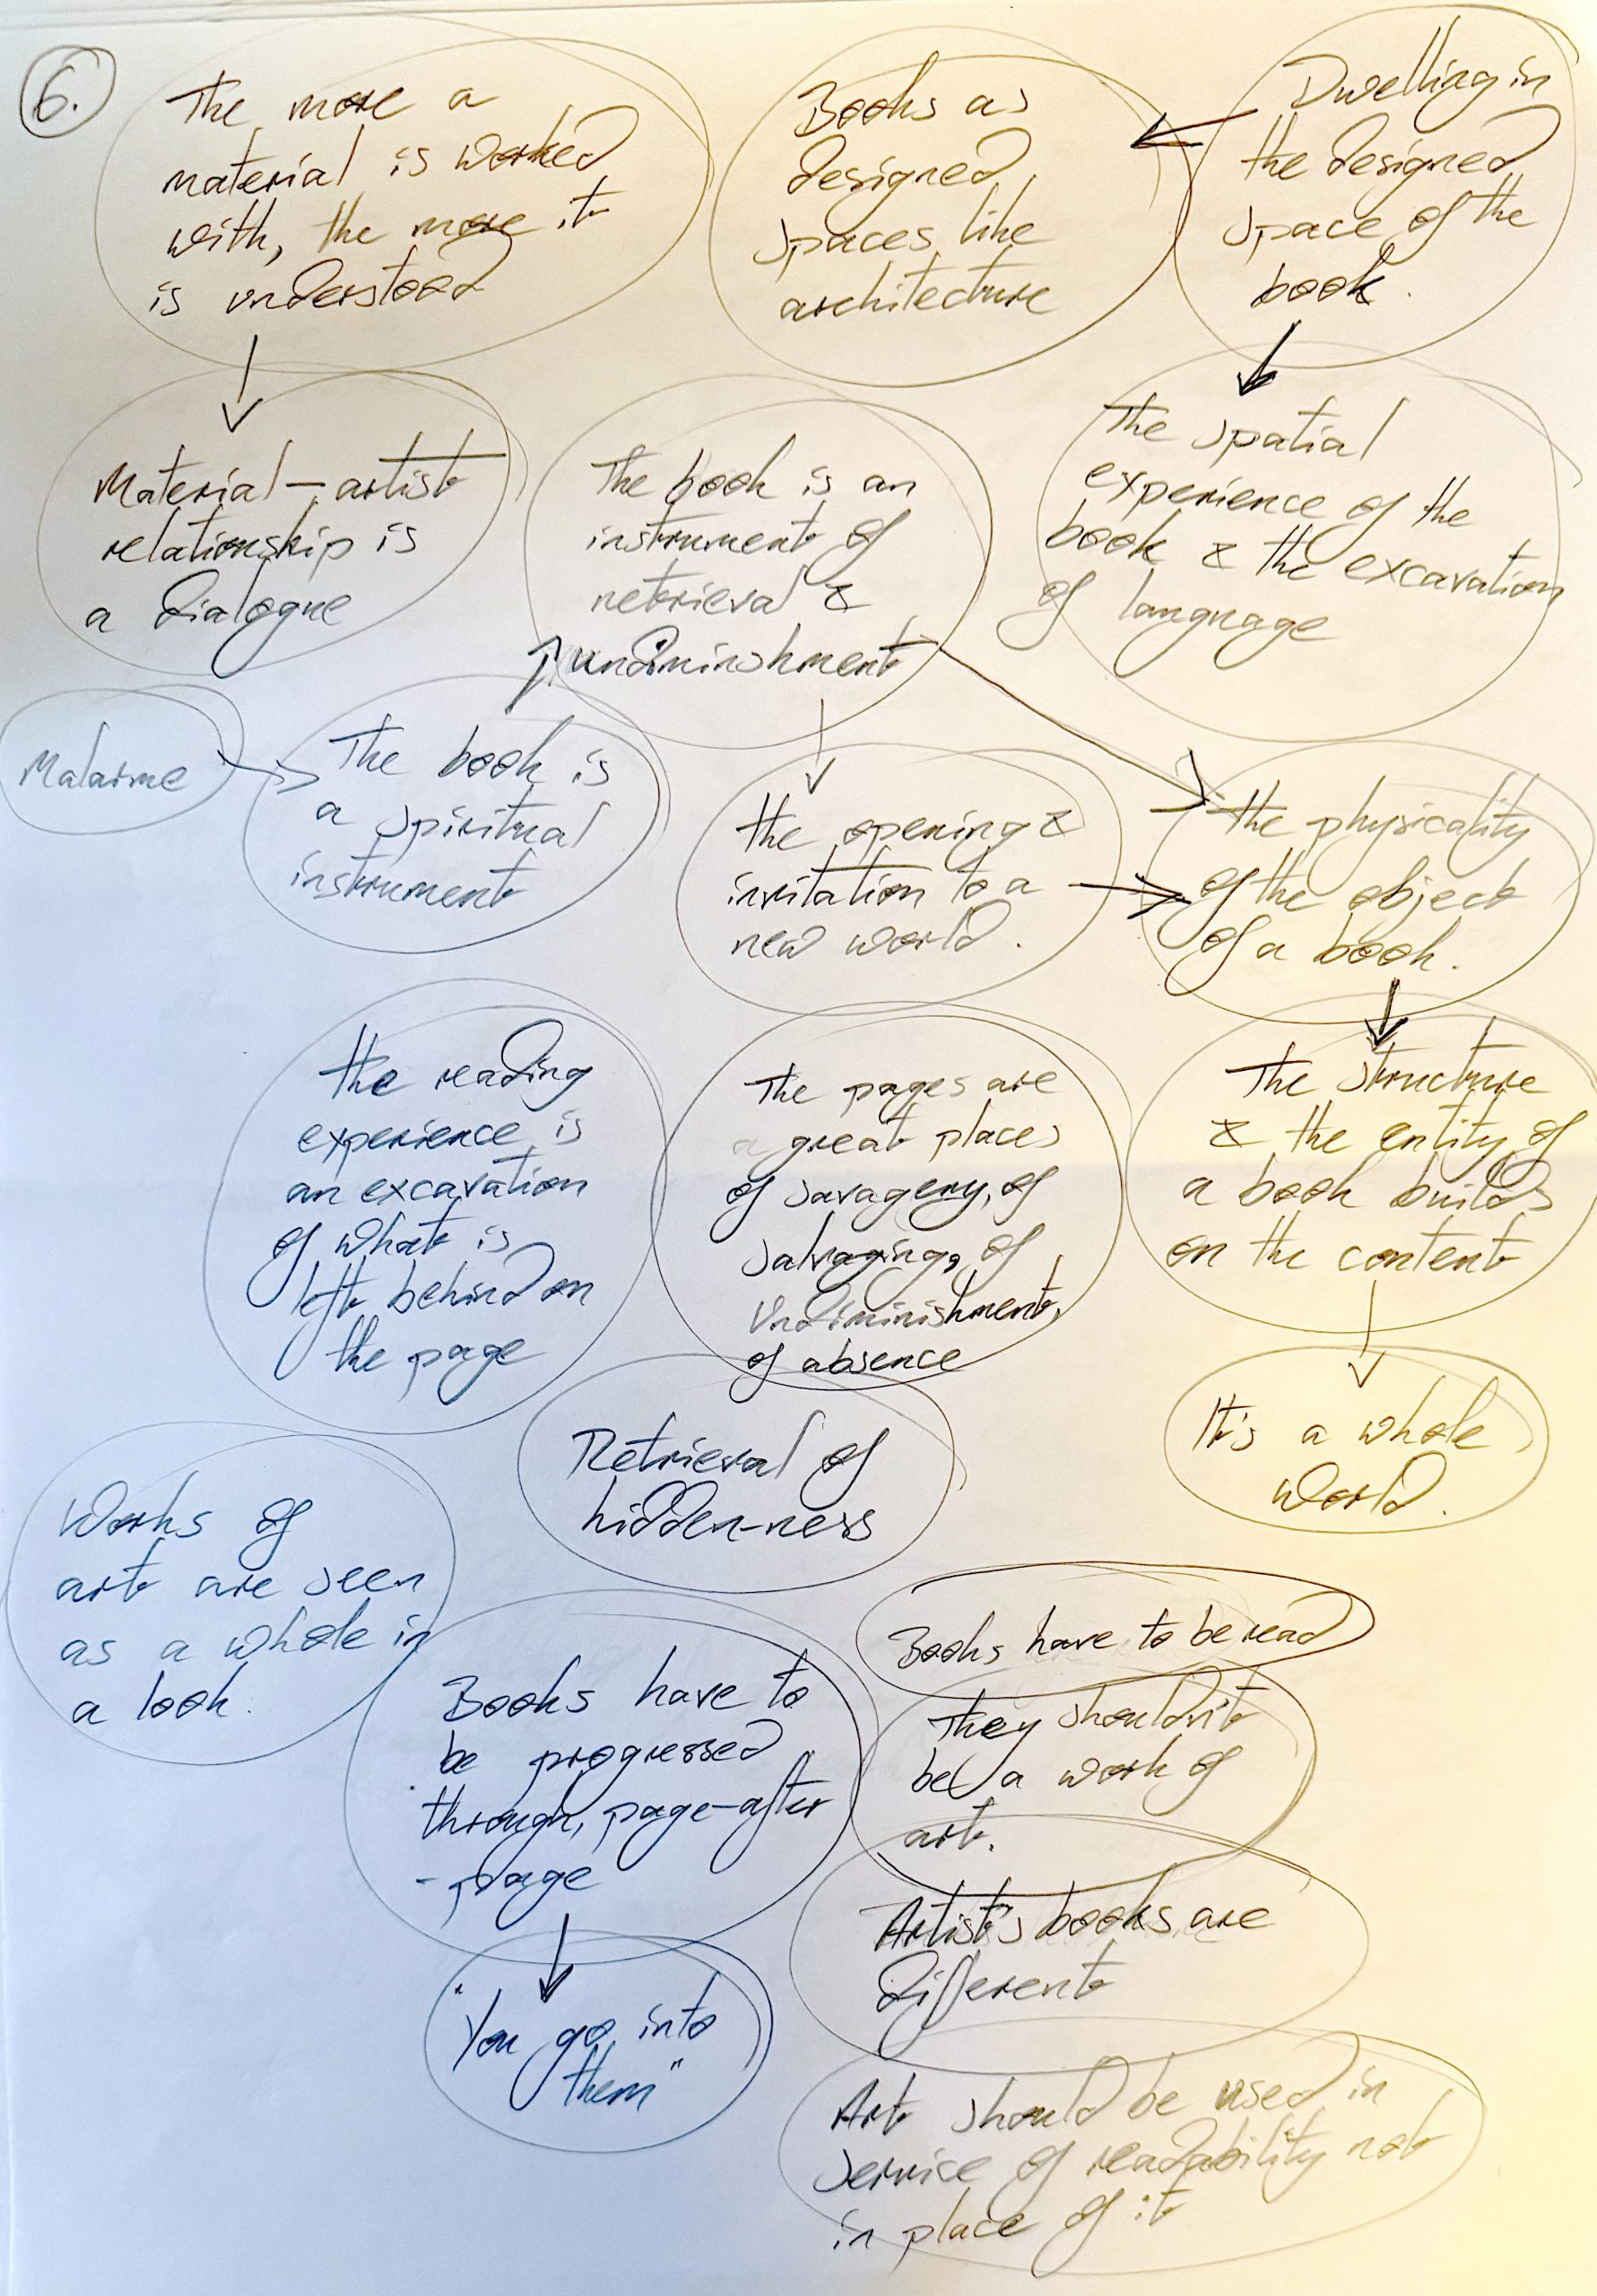 6.
The more a
material is worked
with, the more it
is understood
Books as
designed
spaces like
architecture
Dwelling in
the designed
space of the
book.
Material – artist
relationship is
a dialogue
The book is an
instrument of
retrieval &
undiminishment
The spatial
experience of the
book & the excavation
of language
Malarme
The book is
a spiritual
instrument
the opening &
invitation to a
new world.
the physicality
of the object
of a book.
the reading
experience is
an excavation
of what is
left behind on
the page
The pages are
a great places
of savagery, of
salvaging, of
Undiminishment,
of absence
The structure
& the entity of
a book builds
on the content
Retrieval of
hidden-ness
It's a whole
world.
Works of
art are seen
as a whole in
a look.
Books have to
be progressed
through, page-after
-page
Books have to be read
They shouldn't
be a work of
art.
Artist's books are
different
"You go into
them"
Art should be used in
service of readability not
in place of it